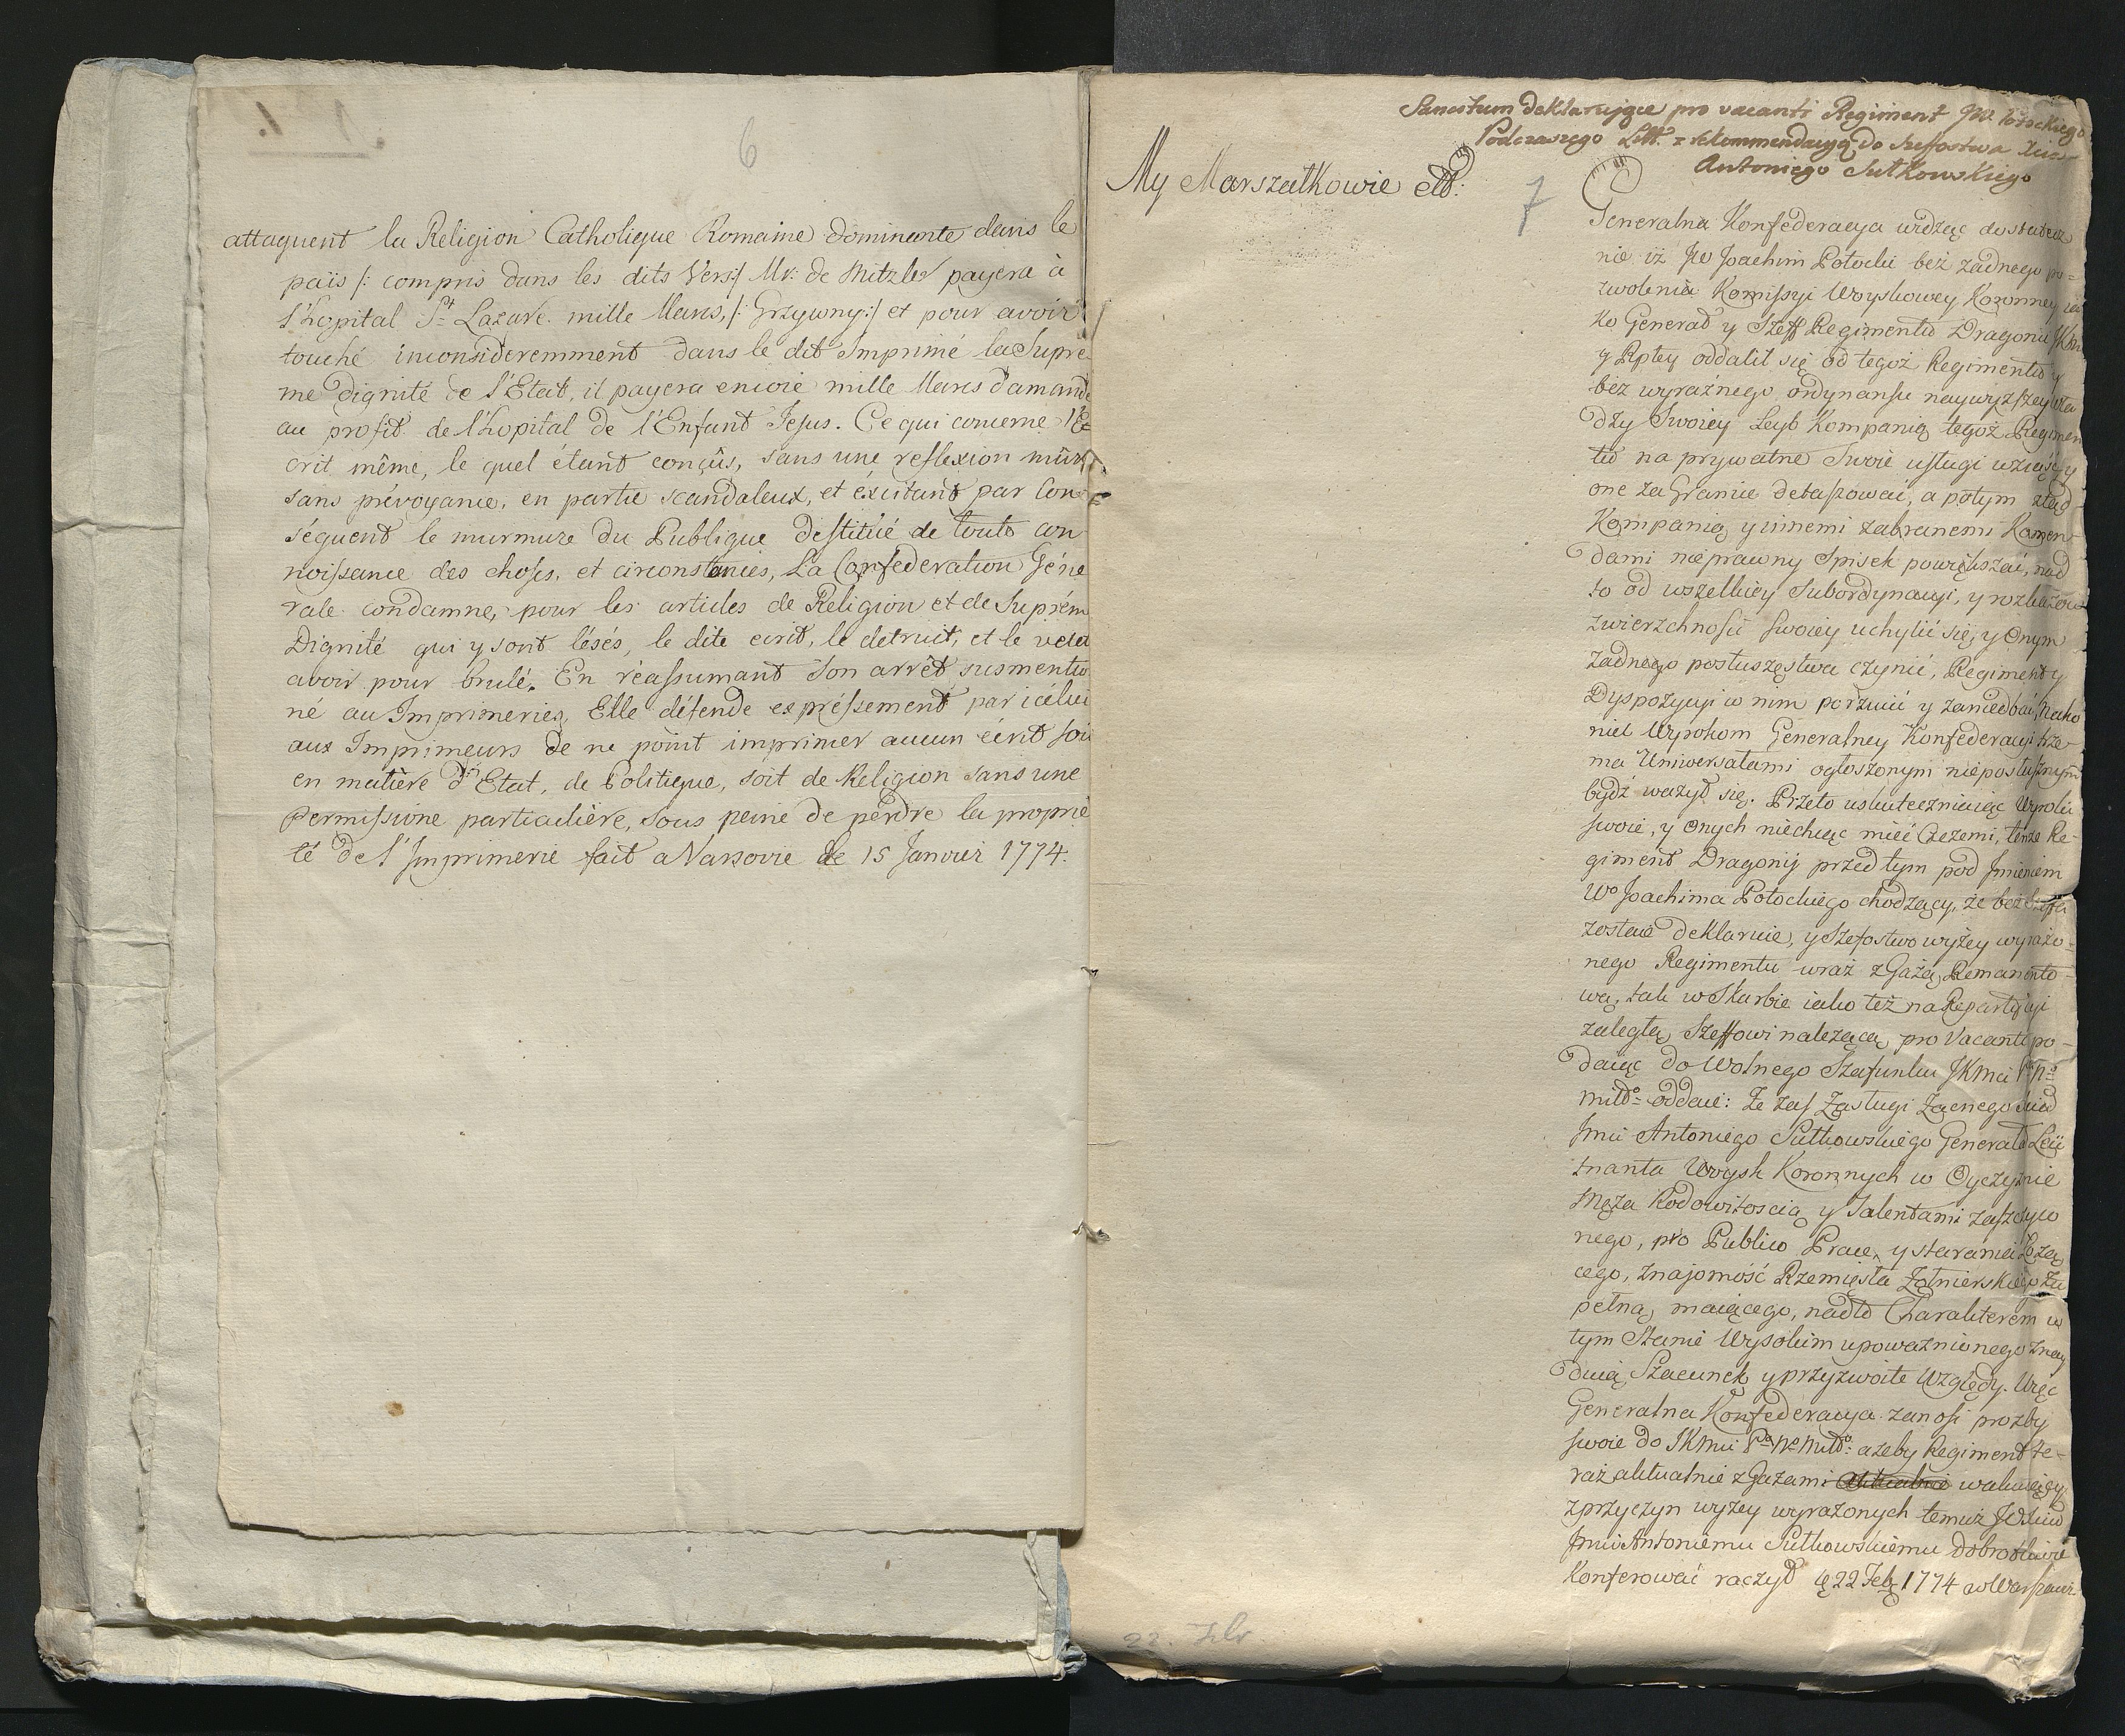 6
attaquent la Religion Catholique Romaine dominante dans le
païs /: compris dans les dits Vers:/ Mr: de Mitzler payera à
l'hopital St Lazare mille Marcs, /: Grzywny:/ et pour avoir
touché inconsideremment dans le dit Imprimé la Supre
me Dignité de l'Etat, il payera encore mille Marcs d'amande
au profit de l'hopital de l'Enfant Jesus. Ce qui concerne l'E
crit même, le quel étant conçûs, sans une reflexion mûre
sans prévoyance, en partie scandaleux, et éxcitant par Con
séquent le murmure du Publique destitüé de touts con
noissance des choses, et circonstances, La Confederation Géne
rale condamne, pour les articles de Religion et de Suprém
Dignité qui y sont lésés, le dite ecrit, le detruit, et le veut
avoir pour brulé. En réassumant son arrêt susmentio
né au Imprimeries, Elle défende expréssement par icelui
aux Imprimeurs de ne point imprimer aucun écrit soit
en matière d'Etat, de Politique, soit de Religion sans une
Permissione particulière, sous peine de perdre la proprie
té de l'Imprimerie fait a Varsovie le 15 Janvier 1774.
Sancitum deklarujące pro vacanti Regiment JW Potockiego
Podczaszego Litt. = rekommendacyą do Szefostwa Xcia
Antoniego Sułkowskiego
My Marszałkowie ett:
7
Generalna Konfederacya widząc dostatecz
nie iż JW Joachim Potocki bez żadnego po=
zwolenia Komissyi Woyskowey Koronney ia
ko Generał y Szeff Regimentu Dragonii JKMci
y Rptey oddalił się od tegoż Regimentu y
bez wyraźnego ordynansu naywyższey wła
dzy Swoiey Leyb Kompanią tegoż Regimen
tu na prywatne Swoie usługi wziąść y
one za Granice detaszować, a potym ztąd
Kompanią y innemi zabranemi Komen
dami nieprawny Spisek powiększać, nad
to od wszelkiey Subordynacyi, y rozkazów
zwierzchności swoiey uchylić się, y Onym
żadnego posłuszęstwa czynić, Regiment y
Dyspozycyi w nim porzucić y zaniedbać, Nako
niec Wyrokom Generalney Konfederacyi trze
ma Uniwersałami ogłoszonym nieposłusznym
bydź ważył się. Przeto uskuteczniaiąc Wyroki
swoie, y Onych niechcąc mieć Czczemi, tenże Re-
giment Dragonij przed tym pod Imieniem
Wo Joachima Potockiego chodzący, że bez Szefa
zostaie deklaruie, y Szefostwo wyżey wyrażo=
nego Regimentu wraz z Gażą Remanento-
wą, tak w Skarbie iako też na Repartycyi
zaległą, Szeffowi należącą pro Vacanti po-
daiąc do Wolnego Szafunku JKMci Pa Nº
Miłº oddaie: Że zaś Zasługi Zacnego Xied
Jmci Antoniego Sułkowskiego Generała Leü
tnanta Woysk Koronnych w Oyczyźnie
Męża Rodowitością y Talentami zaszczyco
nego, pro Publico Prace, y starania Łożą
cego, znajomość Rzemięsła Żołnierskiego Zu
pełną maiącego, nadto Charakterem w
tym Stanie Wysokim upoważnionego znay
duią Szacunek y przyzwoite Względy. Więc
Generalna Konfederacya zanosi prozby
swoie do JKMci Pa Nº Miłº: ażeby Regiment te-
raz aktualnie z Gażami aktualnie wakuiący
z przyczyn wyżey wyrażonych temuż JO Xiud
Jmci Antoniemu Sułkowskiemu dobrotliwie
Konferować raczył d 22 Feb 1774 w Warszawie
22. Febr